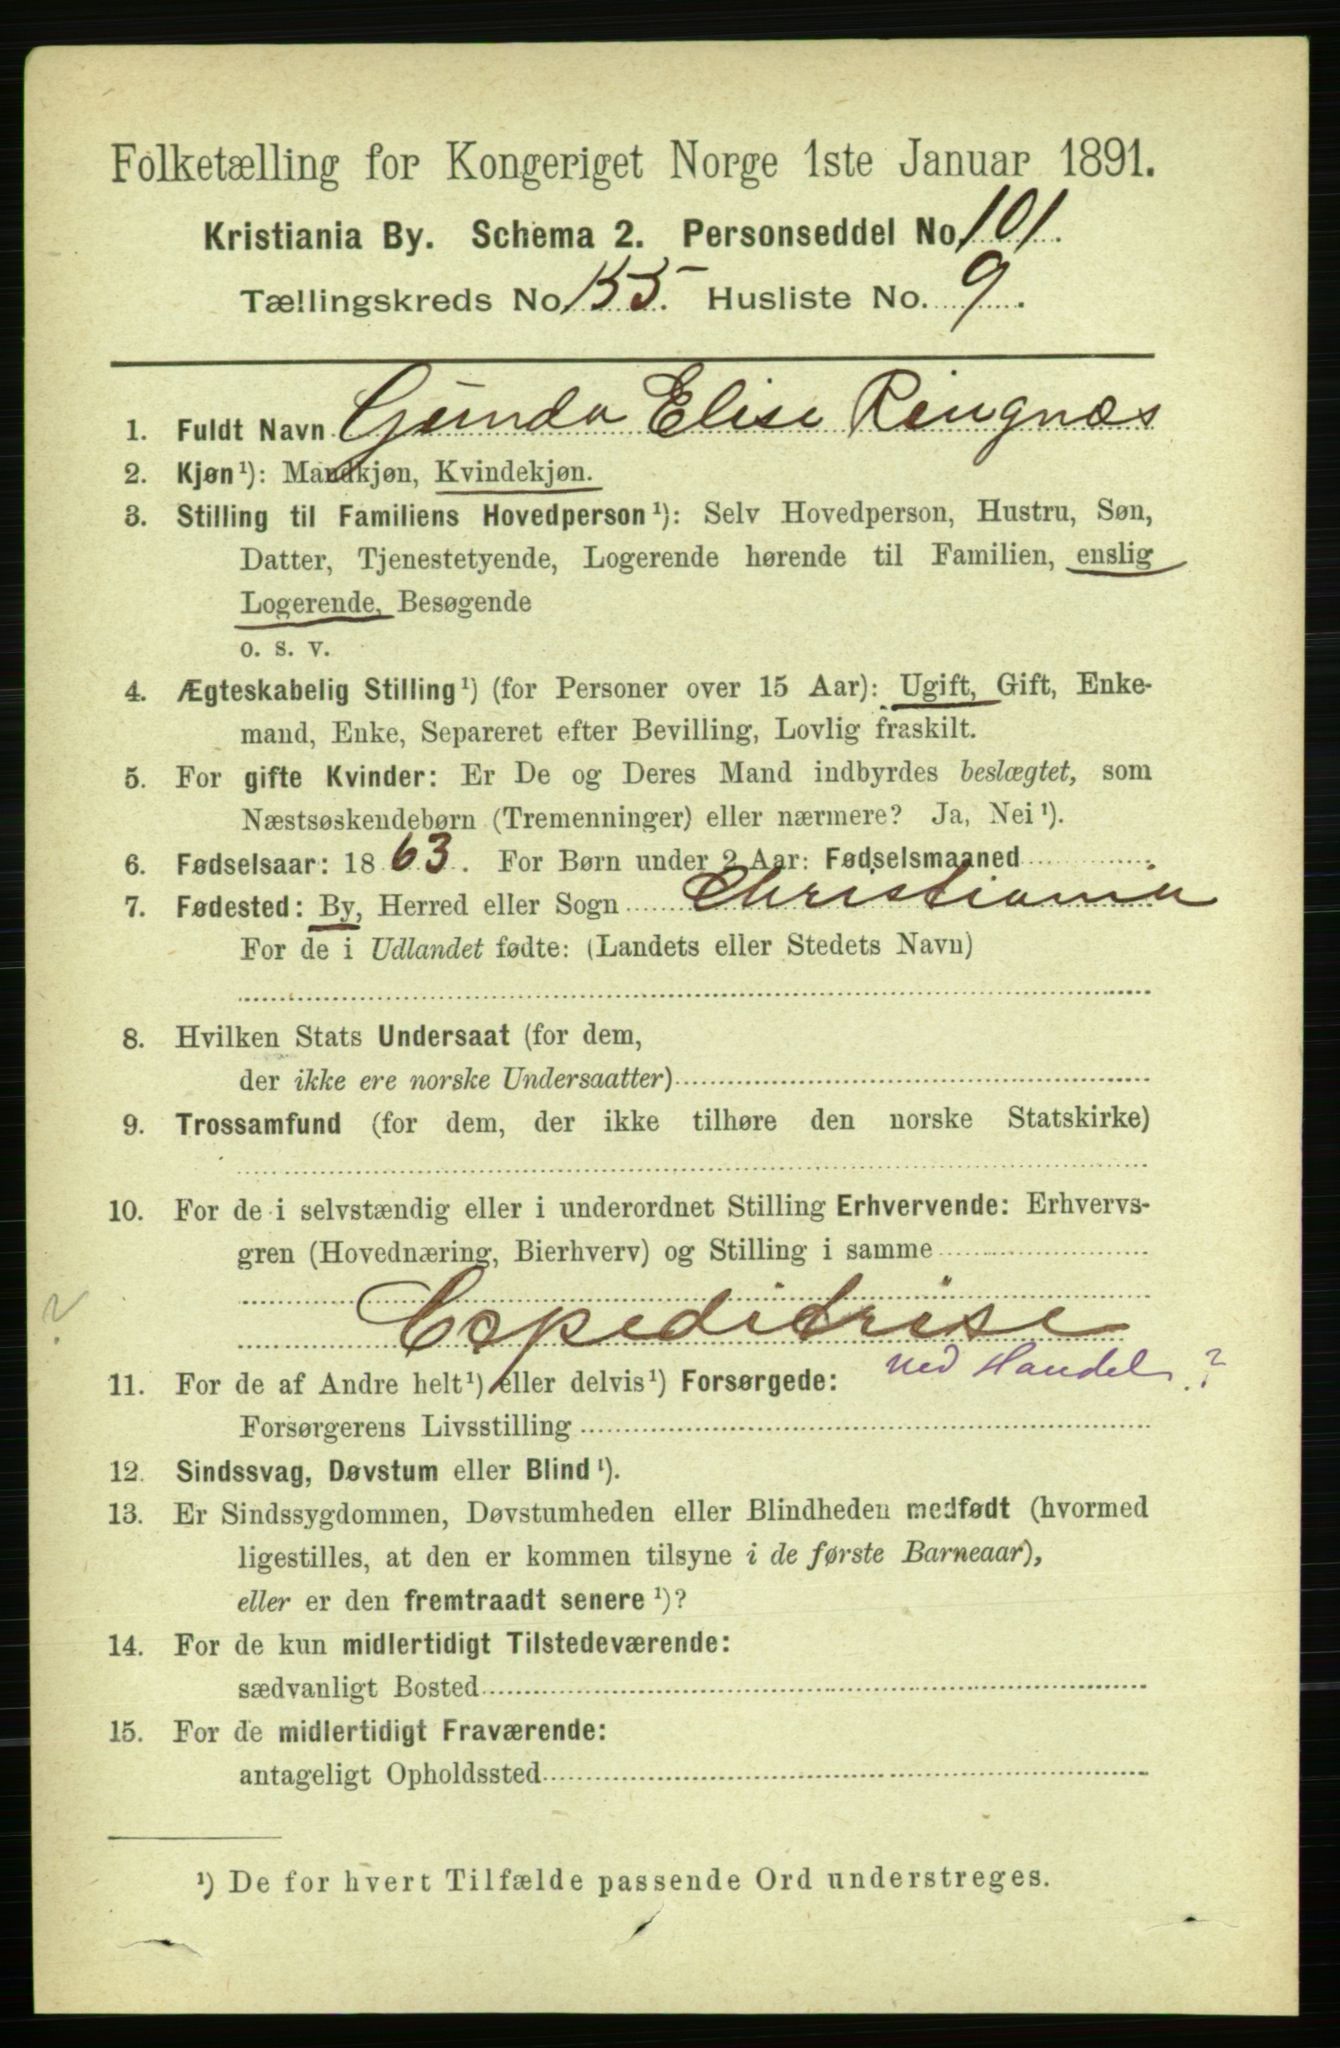 Folketælling for Kongeriget Norge 1ste Januar 1891.
Kristiania By. Schema 2. Personseddel No. 101.
Tællingskreds No. 155. Husliste No. 9.
1. Fuldt Navn Gunda Elise Ringnæs
2. Kjøn¹): Mandkjøn, Kvindekjøn.
3. Stilling til Familiens Hovedperson¹): Selv Hovedperson, Hustru, Søn,
Datter, Tjenestetyende, Logerende hørende til Familien, enslig
Logerende, Besøgende
o. s. v.
4. Ægteskabelig Stilling¹) (for Personer over 15 Aar): Ugift, Gift, Enke-
mand, Enke, Separeret efter Bevilling, Lovlig fraskilt.
5. For gifte Kvinder: Er De og Deres Mand indbyrdes beslægtet, som
Næstsøskendebørn (Tremenninger) eller nærmere? Ja, Nei¹).
6. Fødselsaar: 1863. For Børn under 2 Aar: Fødselsmaaned
7. Fødested: By, Herred eller Sogn Christiania
For de i Udlandet fødte: (Landets eller Stedets Navn)
8. Hvilken Stats Undersaat (for dem,
der ikke ere norske Undersaatter)
9. Trossamfund (for dem, der ikke tilhøre den norske Statskirke)
10. For de i selvstændig eller i underordnet Stilling Erhvervende: Erhvervs-
gren (Hovednæring, Bierhverv) og Stilling i samme
?
Expeditrise
ved Handel ?
11. For de af Andre helt¹) eller delvis¹) Forsørgede:
Forsørgerens Livsstilling
12. Sindssvag, Døvstum eller Blind¹).
13. Er Sindssygdommen, Døvstumheden eller Blindheden medfødt (hvormed
ligestilles, at den er kommen tilsyne i de første Barneaar),
eller er den fremtraadt senere¹)?
14. For de kun midlertidigt Tilstedeværende:
sædvanligt Bosted
15. For de midlertidigt Fraværende:
antageligt Opholdssted
¹) De for hvert Tilfælde passende Ord understreges.